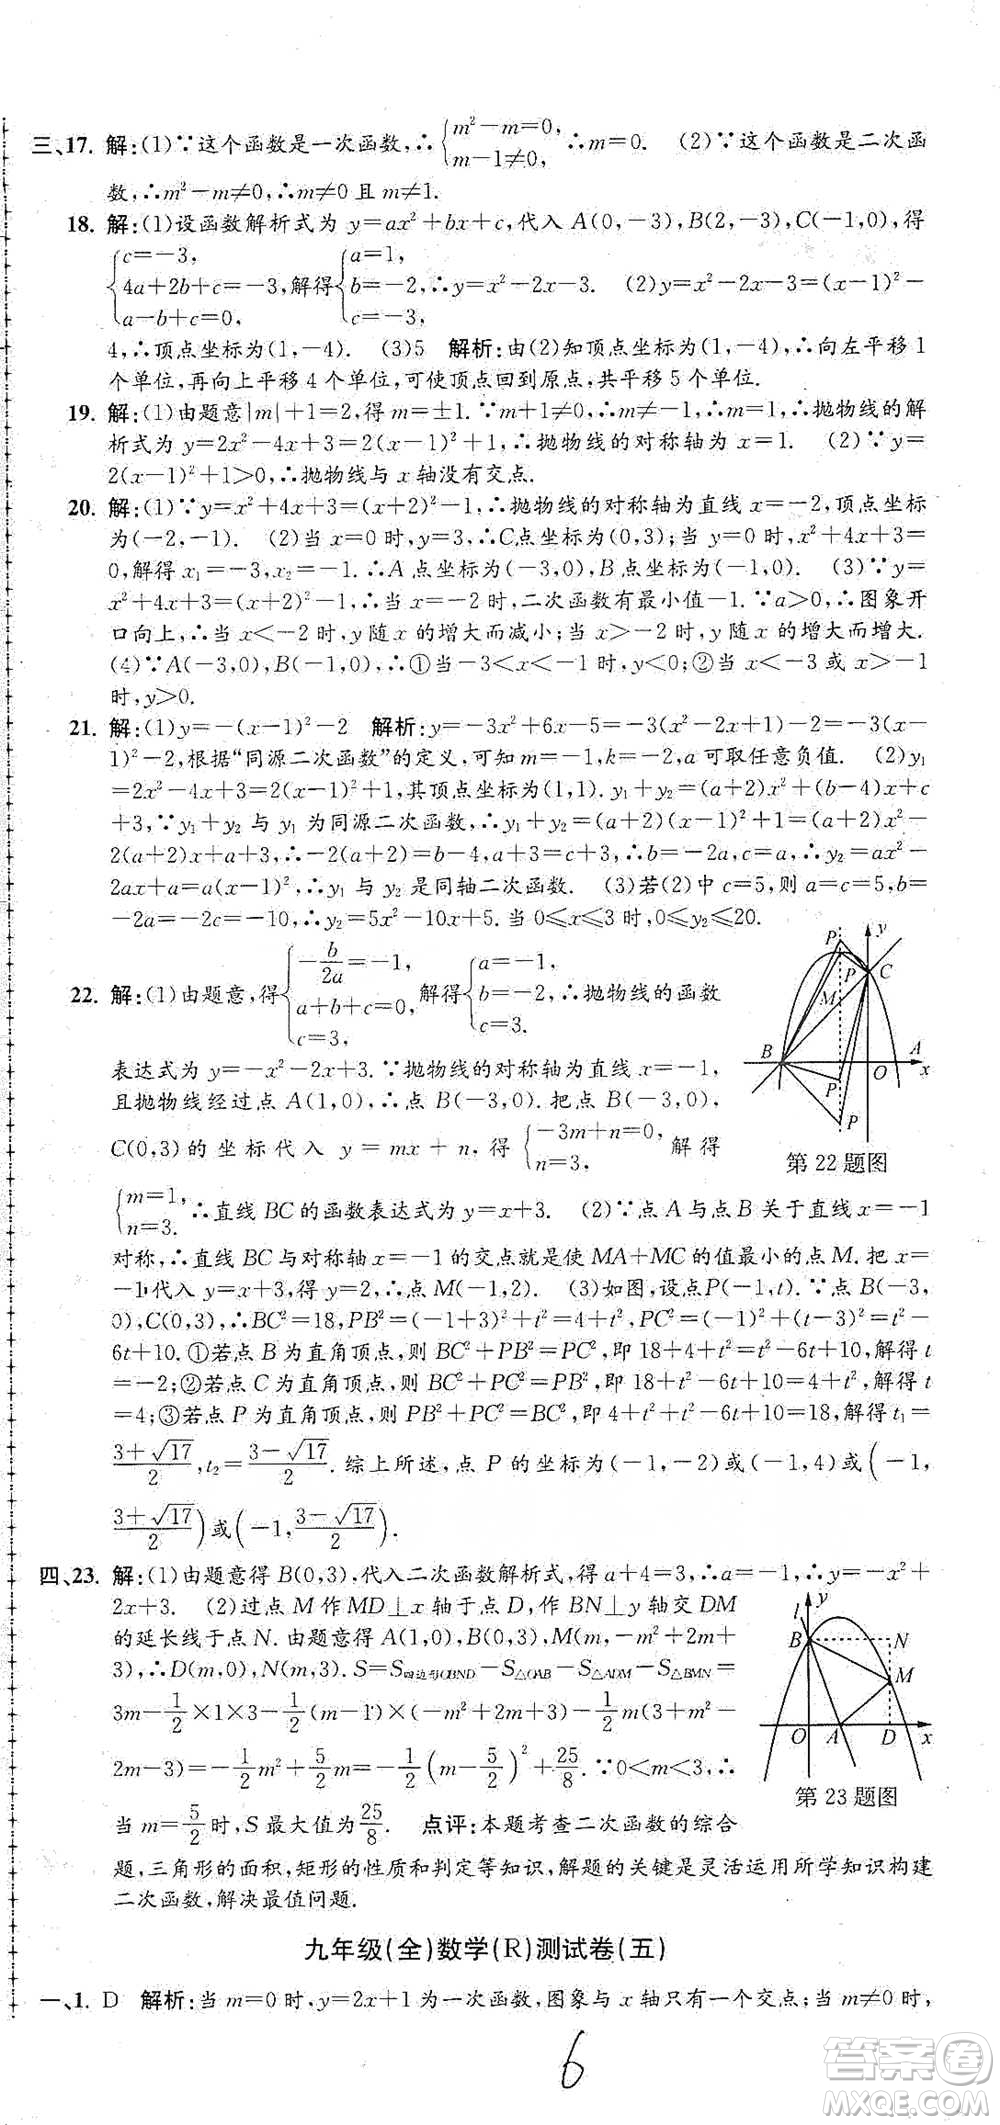 三、17. 解:(1)∵这个函数是一次函数,∴{m²-m=0, m-1≠0, ∴m=0. (2)∵这个函数是二次函
数,∴m²-m≠0,∴m≠0 且 m≠1.
18. 解:(1)设函数解析式为 y=ax²+bx+c,代入 A(0,-3),B(2,-3),C(-1,0),得
{c=-3, 4a+2b+c=-3, a-b+c=0, 解得{a=1, b=-2, c=-3, ∴y=x²-2x-3. (2)y=x²-2x-3=(x-1)²-
4,∴顶点坐标为(1,-4). (3)5 解析:由(2)知顶点坐标为(1,-4),∴向左平移1
个单位,再向上平移4个单位,可使顶点回到原点,共平移5个单位.
19. 解:(1)由题意|m|+1=2,得 m=±1.∵m+1≠0,∴m≠-1,∴m=1,∴抛物线的解
析式为 y=2x²-4x+3=2(x-1)²+1,∴抛物线的对称轴为 x=1. (2)∵y=
2(x-1)²+1>0,∴抛物线与 x 轴没有交点.
20. 解:(1)∵y=x²+4x+3=(x+2)²-1,∴抛物线的对称轴为直线 x=-2,顶点坐标
为(-2,-1). (2)当 x=0 时,y=3,∴C点坐标为(0,3);当 y=0 时,x²+4x+3=
0,解得 x₁=-3,x₂=-1.∴A 点坐标为(-3,0),B点坐标为(-1,0). (3)∵y=
x²+4x+3=(x+2)²-1,∴当 x=-2时,二次函数有最小值-1.∵a>0,∴图象开
口向上,∴当 x<-2时,y 随 x 的增大而减小;当 x>-2时,y 随 x 的增大而增大.
(4)∵A(-3,0),B(-1,0),∴①当-3<x<-1时,y<0;②当 x<-3 或 x>-1
时,y>0.
21. 解:(1)y=-(x-1)²-2 解析:y=-3x²+6x-5=-3(x²-2x+1)-2=-3(x
-1)²-2,根据“同源二次函数”的定义,可知 m=-1,k=-2,a 可取任意负值. (2)y₁
=2x²-4x+3=2(x-1)²+1,∴顶点坐标为(1,1).y₁+y₂=(a+2)x²+(b-4)x+c
+3,∵y₁+y₂ 与 y₁ 为同源二次函数,∴y₁+y₂=(a+2)(x-1)²+1=(a+2)x²-
2(a+2)x+a+3,∴b-4=-2(a+2),a+3=c+3,∴b=-2a,a=c,∴y₂=ax²-
2ax+a=a(x-1)²,∴y₁ 与 y₂ 是同轴二次函数. (3)若(2)中 c=5,则 a=c=5,b=
-2a=-2c=-10,∴y₂=5x²-10x+5.当 0≤x≤3 时,0≤y₂≤20.
22. 解:(1)由题意,得{-b/2a=-1, a+b+c=0, c=3, 解得{a=-1, b=-2, c=3. ∴抛物线的函数
表达式为 y=-x²-2x+3.∵抛物线的对称轴为 x=-1,
且抛物线经过点 A(1,0),∴点 B(-3,0).把点 B(-3,0),
C(0,3)的坐标代入 y=mx+n, 得{-3m+n=0, n=3, 解得
{m=1, n=3. ∴直线 BC 的函数表达式为 y=x+3. (2)∵点 A 与点 B 关于直线 x=-1
对称,∴直线 BC 与对称轴 x=-1 的交点就是使 MA+MC 的值最小的点 M. 把 x=
-1代入 y=x+3,得 y=2,∴点 M(-1,2). (3)如图,设点P(-1,t).∵点 B(-3,
0),C(0,3),∴BC²=18,PB²=(-1+3)²+t²=4+t²,PC²=(-1)²+(t-3)²=t²-
6t+10.①若点 B 为直角顶点,则 BC²+PB²=PC²,即 18+4+t²=t²-6t+10,解得 t
=-2;②若点 C 为直角顶点,则 BC²+PC²=PB²,即 18+t²-6t+10=4+t²,解得 t
=4;③若点 P 为直角顶点,则 PB²+PC²=BC²,即 4+t²+t²-6t+10=18,解得 t₁=
(3+√17)/2,t₂=(3-√17)/2.综上所述,点 P 的坐标为(-1,-2)或(-1,4)或(-1,
(3+√17)/2)或(-1,(3-√17)/2).
B M P P C P P O A x y
第22题图
四、23. 解:(1)由题意得 B(0,3),代入二次函数解析式,得 a+4=3,∴a=-1,∴y=-x²+
2x+3. (2)过点 M 作 MD⊥x 轴于点 D,作 BN⊥y 轴交 DM
的延长线于点 N. 由题意得 A(1,0),B(0,3),M(m,-m²+2m+
3),∴D(m,0),N(m,3).S=S四边形OBND-S△OAB-S△ADM-S△BMN=
3m-1/2×1×3-1/2(m-1)×(-m²+2m+3)-1/2m(3+m²-
2m-3)=-1/2m²+5/2m=-1/2(m-5/2)²+25/8.∵-1/2<0,∴
当 m=5/2时,S 最大值为25/8. 点评:本题考查二次函数的综合
题,三角形的面积,矩形的性质和判定等知识,解题的关键是灵活运用所学知识构建
二次函数,解决最值问题.
l y B N M O A D x
第23题图
九年级(全)数学(R)测试卷(五)
一、1. D 解析:当 m=0 时,y=2x+1 为一次函数,图象与 x 轴只有一个交点;当 m≠0 时,
6
答案卷
MXQE.COM